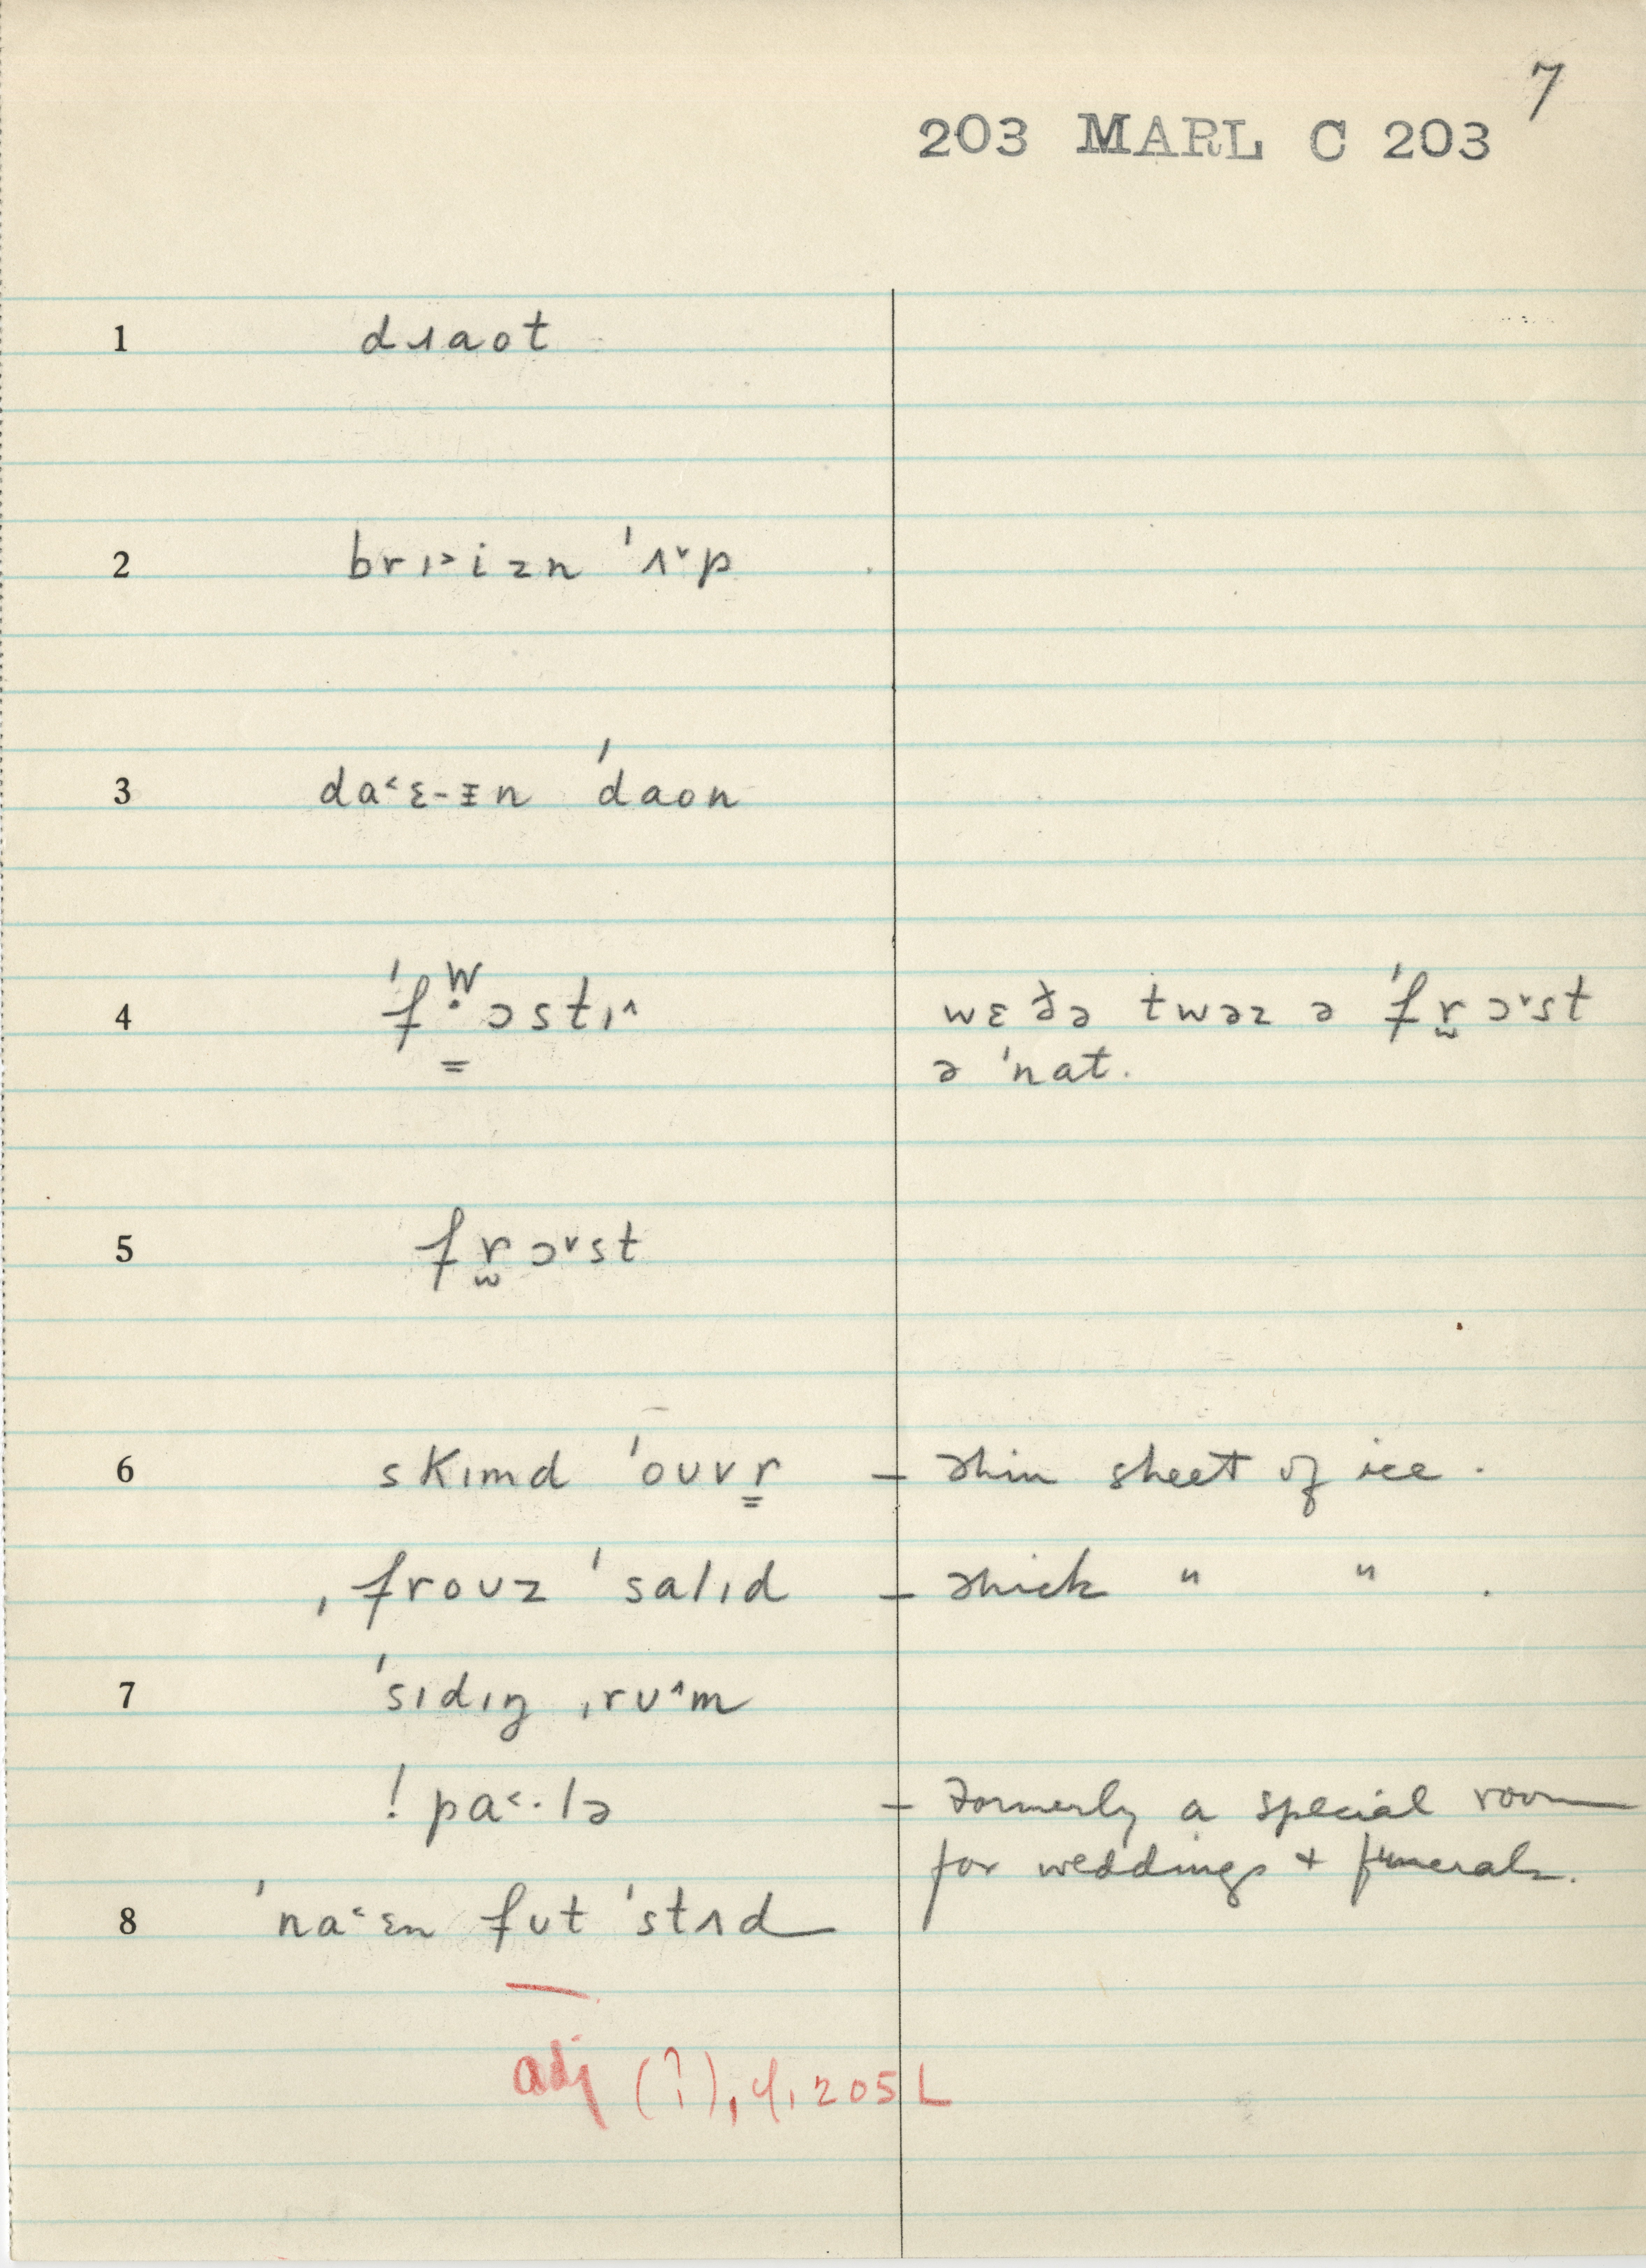 7
203 MARL C 203
1 dɹaot
2 brɪ˃izn 'ʌ˅p
3 da˂ɛ-ɪn 'daon
4 'fẉɔstɪ˄ wɛðə twəz ə 'fr̫ɔ˅st
ə 'nat.
5 fr̫ɔ˅st
6 skɪmd 'oʊvr̳ – thin sheet of ice.
ˌfroʊz 'salɪd – thick " " .
7 'sɪdɪŋ ˌrʊ˄m
! pa˂·lə – Formerly a special room
for weddings + funerals.
8 'na˂ɛn fʊt 'stʌd
adj (?), cf. 205 L